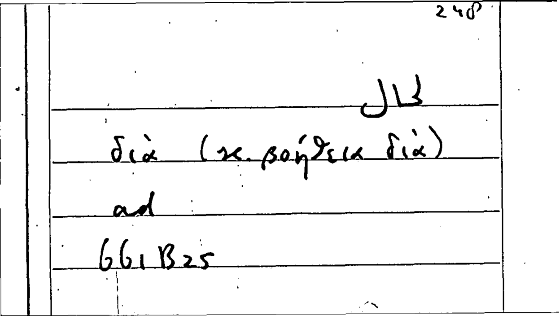 248
διὰ (κ. βοήθεια διὰ)
ad
661 B 25